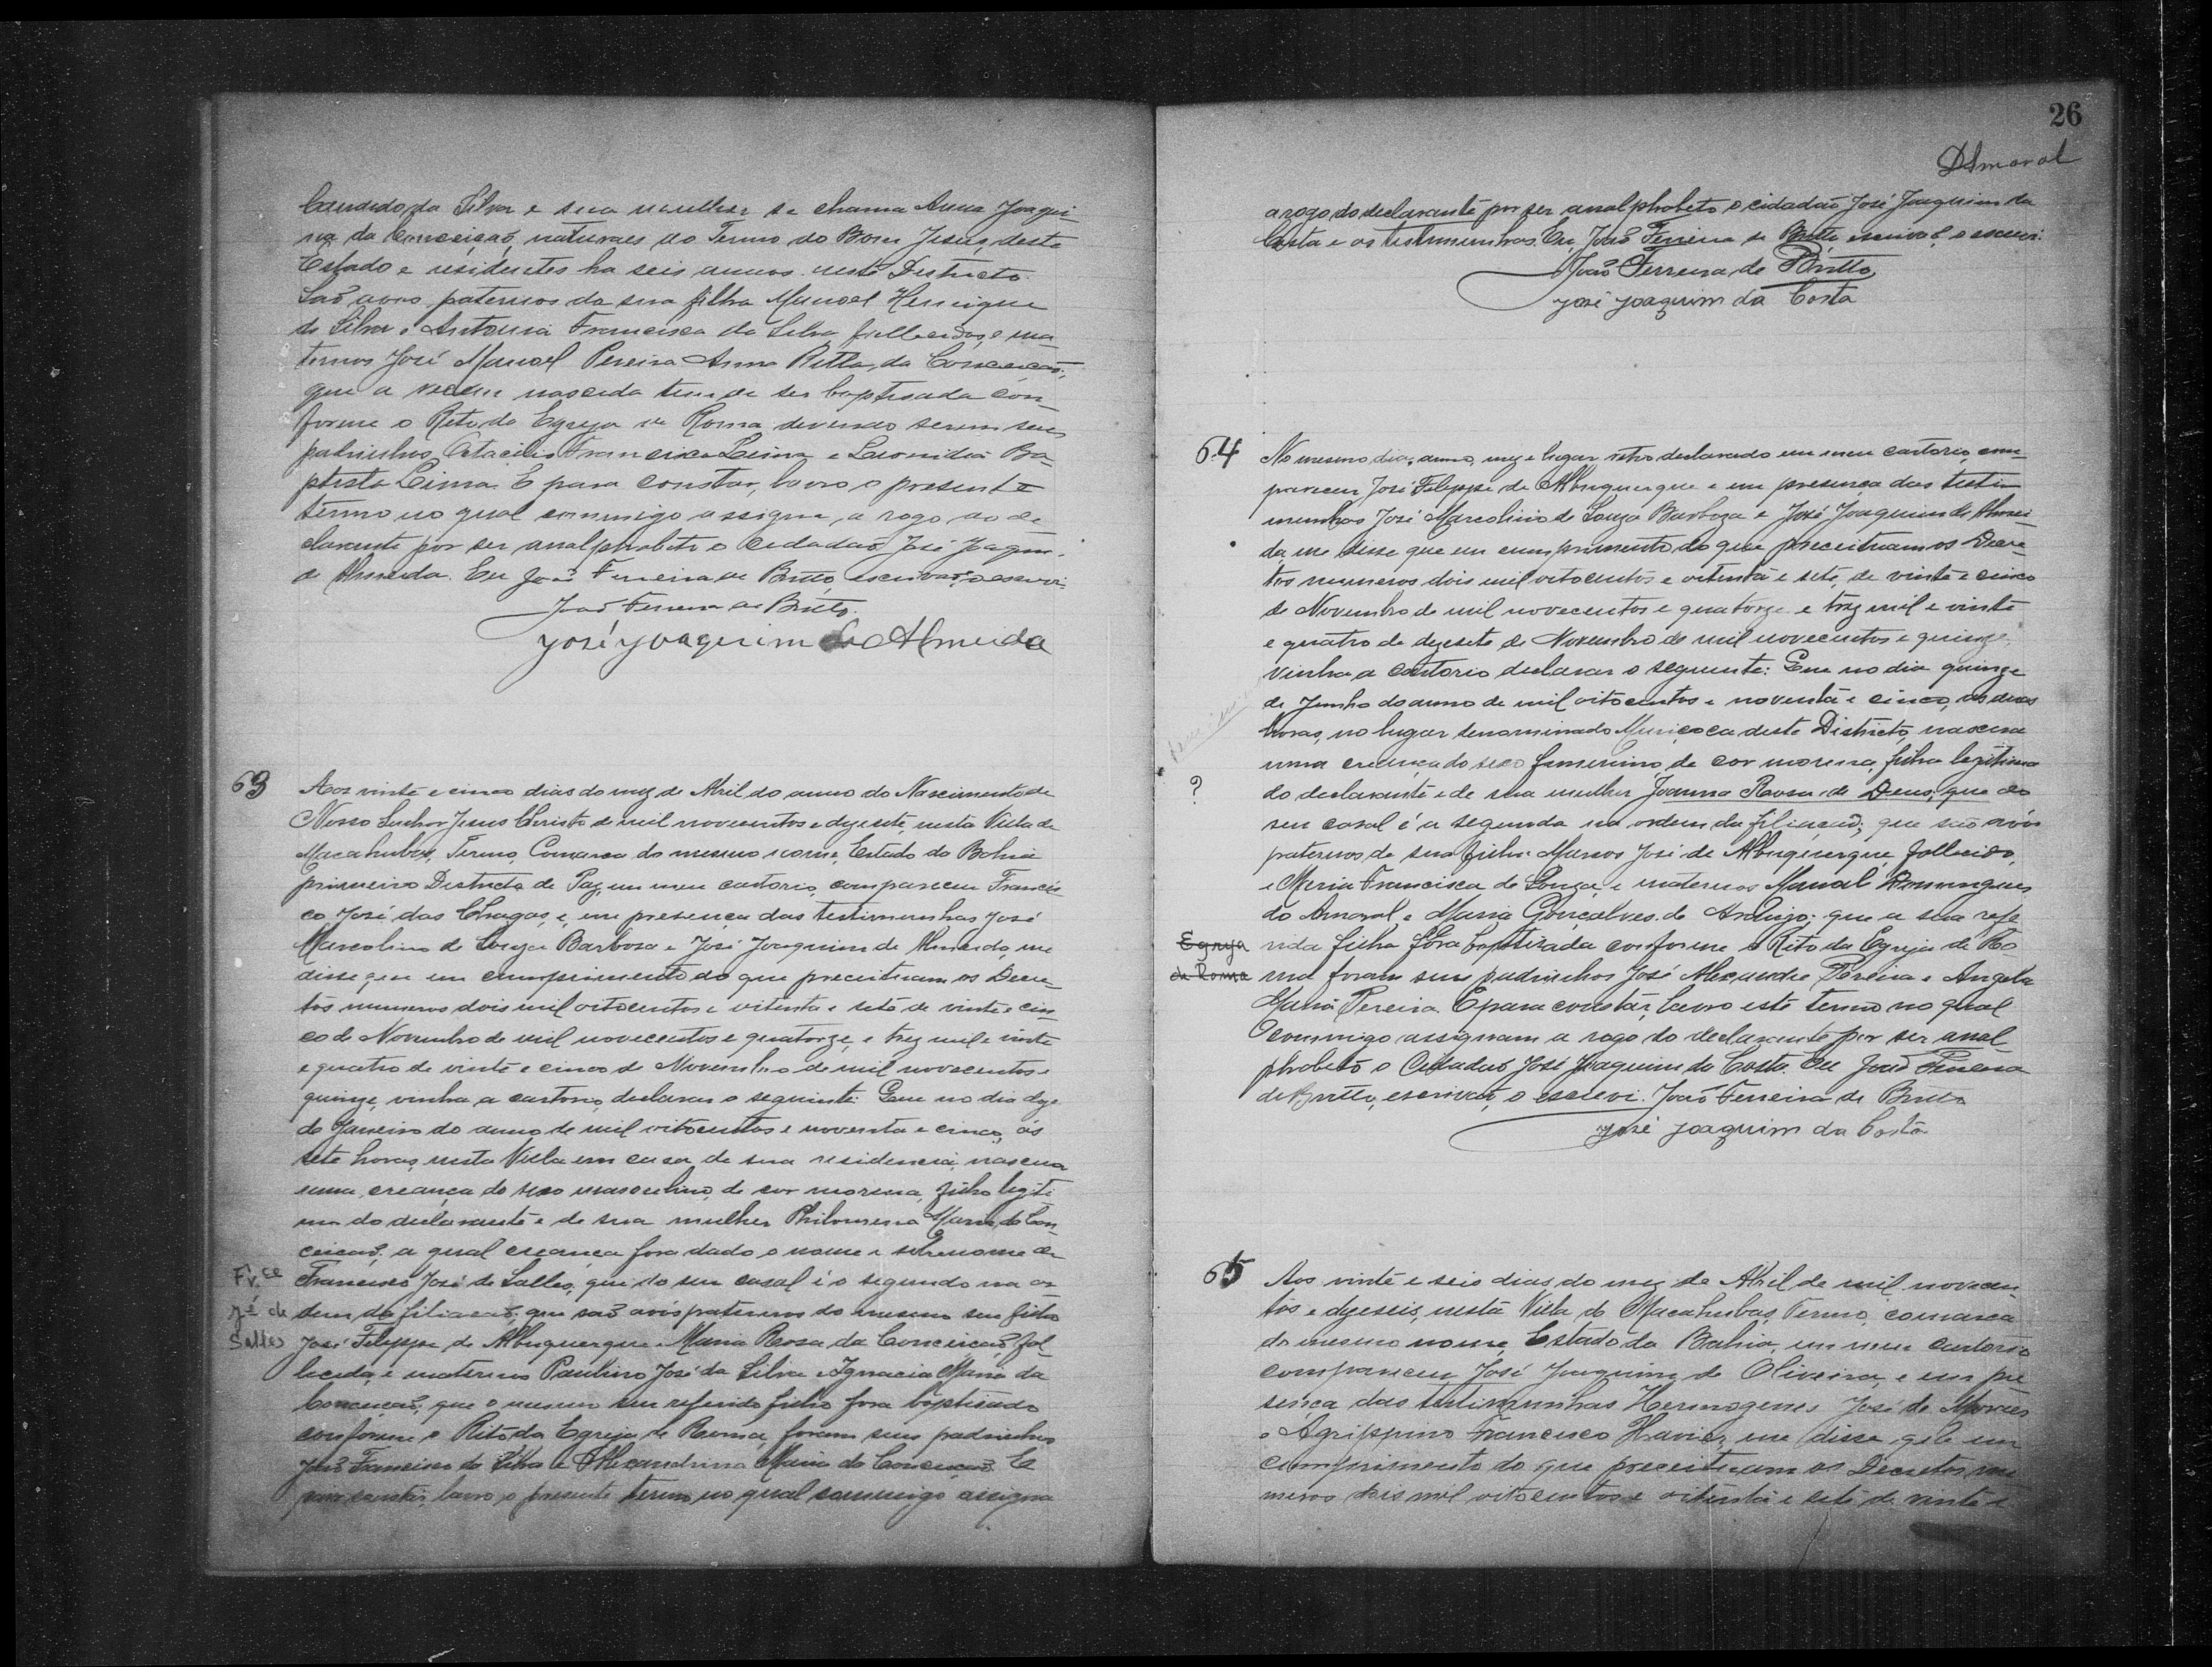 Candido da Silva e sua mulher se chama Anna Joaqui-
na da Conceição, naturaes do Termo do Bom Jesus, deste
Estado e residentes ha seis annos neste Districto.
São avos paternos da sua filha Manoel Henrique
da Silva e Antonia Francisca da Silva, fallecidos, e ma-
ternos José Manoel Pereira Anna Ritta da Conceição;
que a recem nascida tem de ser baptisada con-
forme o Rito da Egreja de Roma devendo serem seus
padrinhos Francisco Lima e Leonidia Ba-
ptista Lima. E para constar, lavro o presente
termo no qual commigo assigna, a rogo do de-
clarante por ser analphabeto o cidadão José Joaquim
de Almeida. Eu João Ferreira de Britto, escrivão, o escrevi.
João Ferreira de Britto.
José Joaquim de Almeida
63 Aos vinte e cinco dias do mez de Abril do anno do Nascimento de
Nosso Senhor Jesus Christo de mil novecentos e dezesete, nesta Villa de
Macahubas, Termo, Comarca do mesmo nome, Estado da Bahia
primeiro Districto de Paz, em meu cartorio, compareceu Francis-
co José das Chagas, e, em presença das testimunhas José
Marcolino de Souza Barbosa e José Joaquim de Almeida, me
disse que em cumprimento do que preceituam os Decre-
tos numeros dois mil oitocentos e oitenta e sete de vinte e cin-
co de Novembro de mil novecentos e quatorze, e trez mil e vinte
e quatro de vinte e cinco de Novembro de mil novecentos e
quinze, vinha a cartorio, declarar o seguinte: Que no dia
de Janeiro do anno de mil oitocentos e noventa e cinco, ás
sete horas, nesta Villa em casa de sua residencia, nasceu
uma creança do sexo masculino, de cor morena, filho legiti-
mo do declarante e de sua mulher Philomena Maria da Con-
ceição, a qual creança fora dado o nome e sobrenome de
Francisco José de Salles, que do seu casal é o segundo na or-
Fr.co
dem da filiação, que são avós paternos do mesmo seu filho
zé de
José Filippe de Albuquerque Maria Rosa da Conceição, fal-
Salles
lecida, e maternos Paulino José da Silva e Ignacia Maria da
Conceição, que o mesmo seu referido filho fora baptisado
conforme o Rito da Egreja de Roma, foram seus padrinhos
João Francisco da Silva e Alexandrina Maria da Conceição. E
para constar, lavro o presente termo no qual commigo assigna
26
DAmaral
a rogo do declarante por ser analphabeto o cidadão José Joaquim da
Costa e as testimunhas. Eu, João Ferreira de Britto, escrivão, o escrevi.
João Ferreira de Britto
José Joaquim da Costa
64 No mesmo dia, anno, mez e lugar retro declarado em meu cartorio, com-
pareceu José Filippe de Albuquerque e em presença das testi-
munhas José Marcolino de Souza Barboza e José Joaquim de Almei-
da me disse que em cumprimento do que preceituam os Decre-
tos numeros dois mil oitocentos e oitenta e sete, de vinte e cinco
de Novembro de mil novecentos e quatorze e trez mil e vinte
e quatro de dezesete de Novembro de mil novecentos e quinze,
vinha a cartorio declarar o seguinte: Que no dia quinze
de Junho do anno de mil oitocentos e noventa e cinco, as duas
horas, no lugar denominado Muriçoca deste Districto, nasceu
uma creança do sexo femenino, de cor morena, filha legitima
? do declarante e de sua mulher Joanna Rosa de Deus, que do
seu casal é a segunda na ordem da filiação; que são avós
paternos de sua filha Marcos José de Albuquerque, fallecido,
e Maria Francisca de Souza e maternos Manoel Domingues
do Amaral, e Maria Gonçalves de Araujo; que a sua refe-
Egreja rida filha fôra baptisada conforme o Rito da Egreja de Ro-
de Roma ma foram seus padrinhos José Alexandre Pereira e Angela
Maria Pereira. E para constar, lavro este termo no qual
commigo assignam a rogo do declarante por ser anal-
phabeto o Cidadão José Joaquim da Costa. Eu João Ferreira
de Britto, escrivão, o escrevi. João Ferreira de Britto
José Joaquim da Costa
65 Aos vinte e seis dias do mez de Abril de mil novecen-
tos e dezeseis, nesta Villa de Macahubas, Termo, comarca
do mesmo nome, Estado da Bahia, em meu cartorio
compareceu José Joaquim de Oliveira, e em pre-
sença das testimunhas Hermogenes José de Moraes
e Agrippino Francisco Xavier, me disse que em
cumprimento do que preceituam os Decretos nu-
meros dois mil oitocentos e oitenta e sete de vinte e